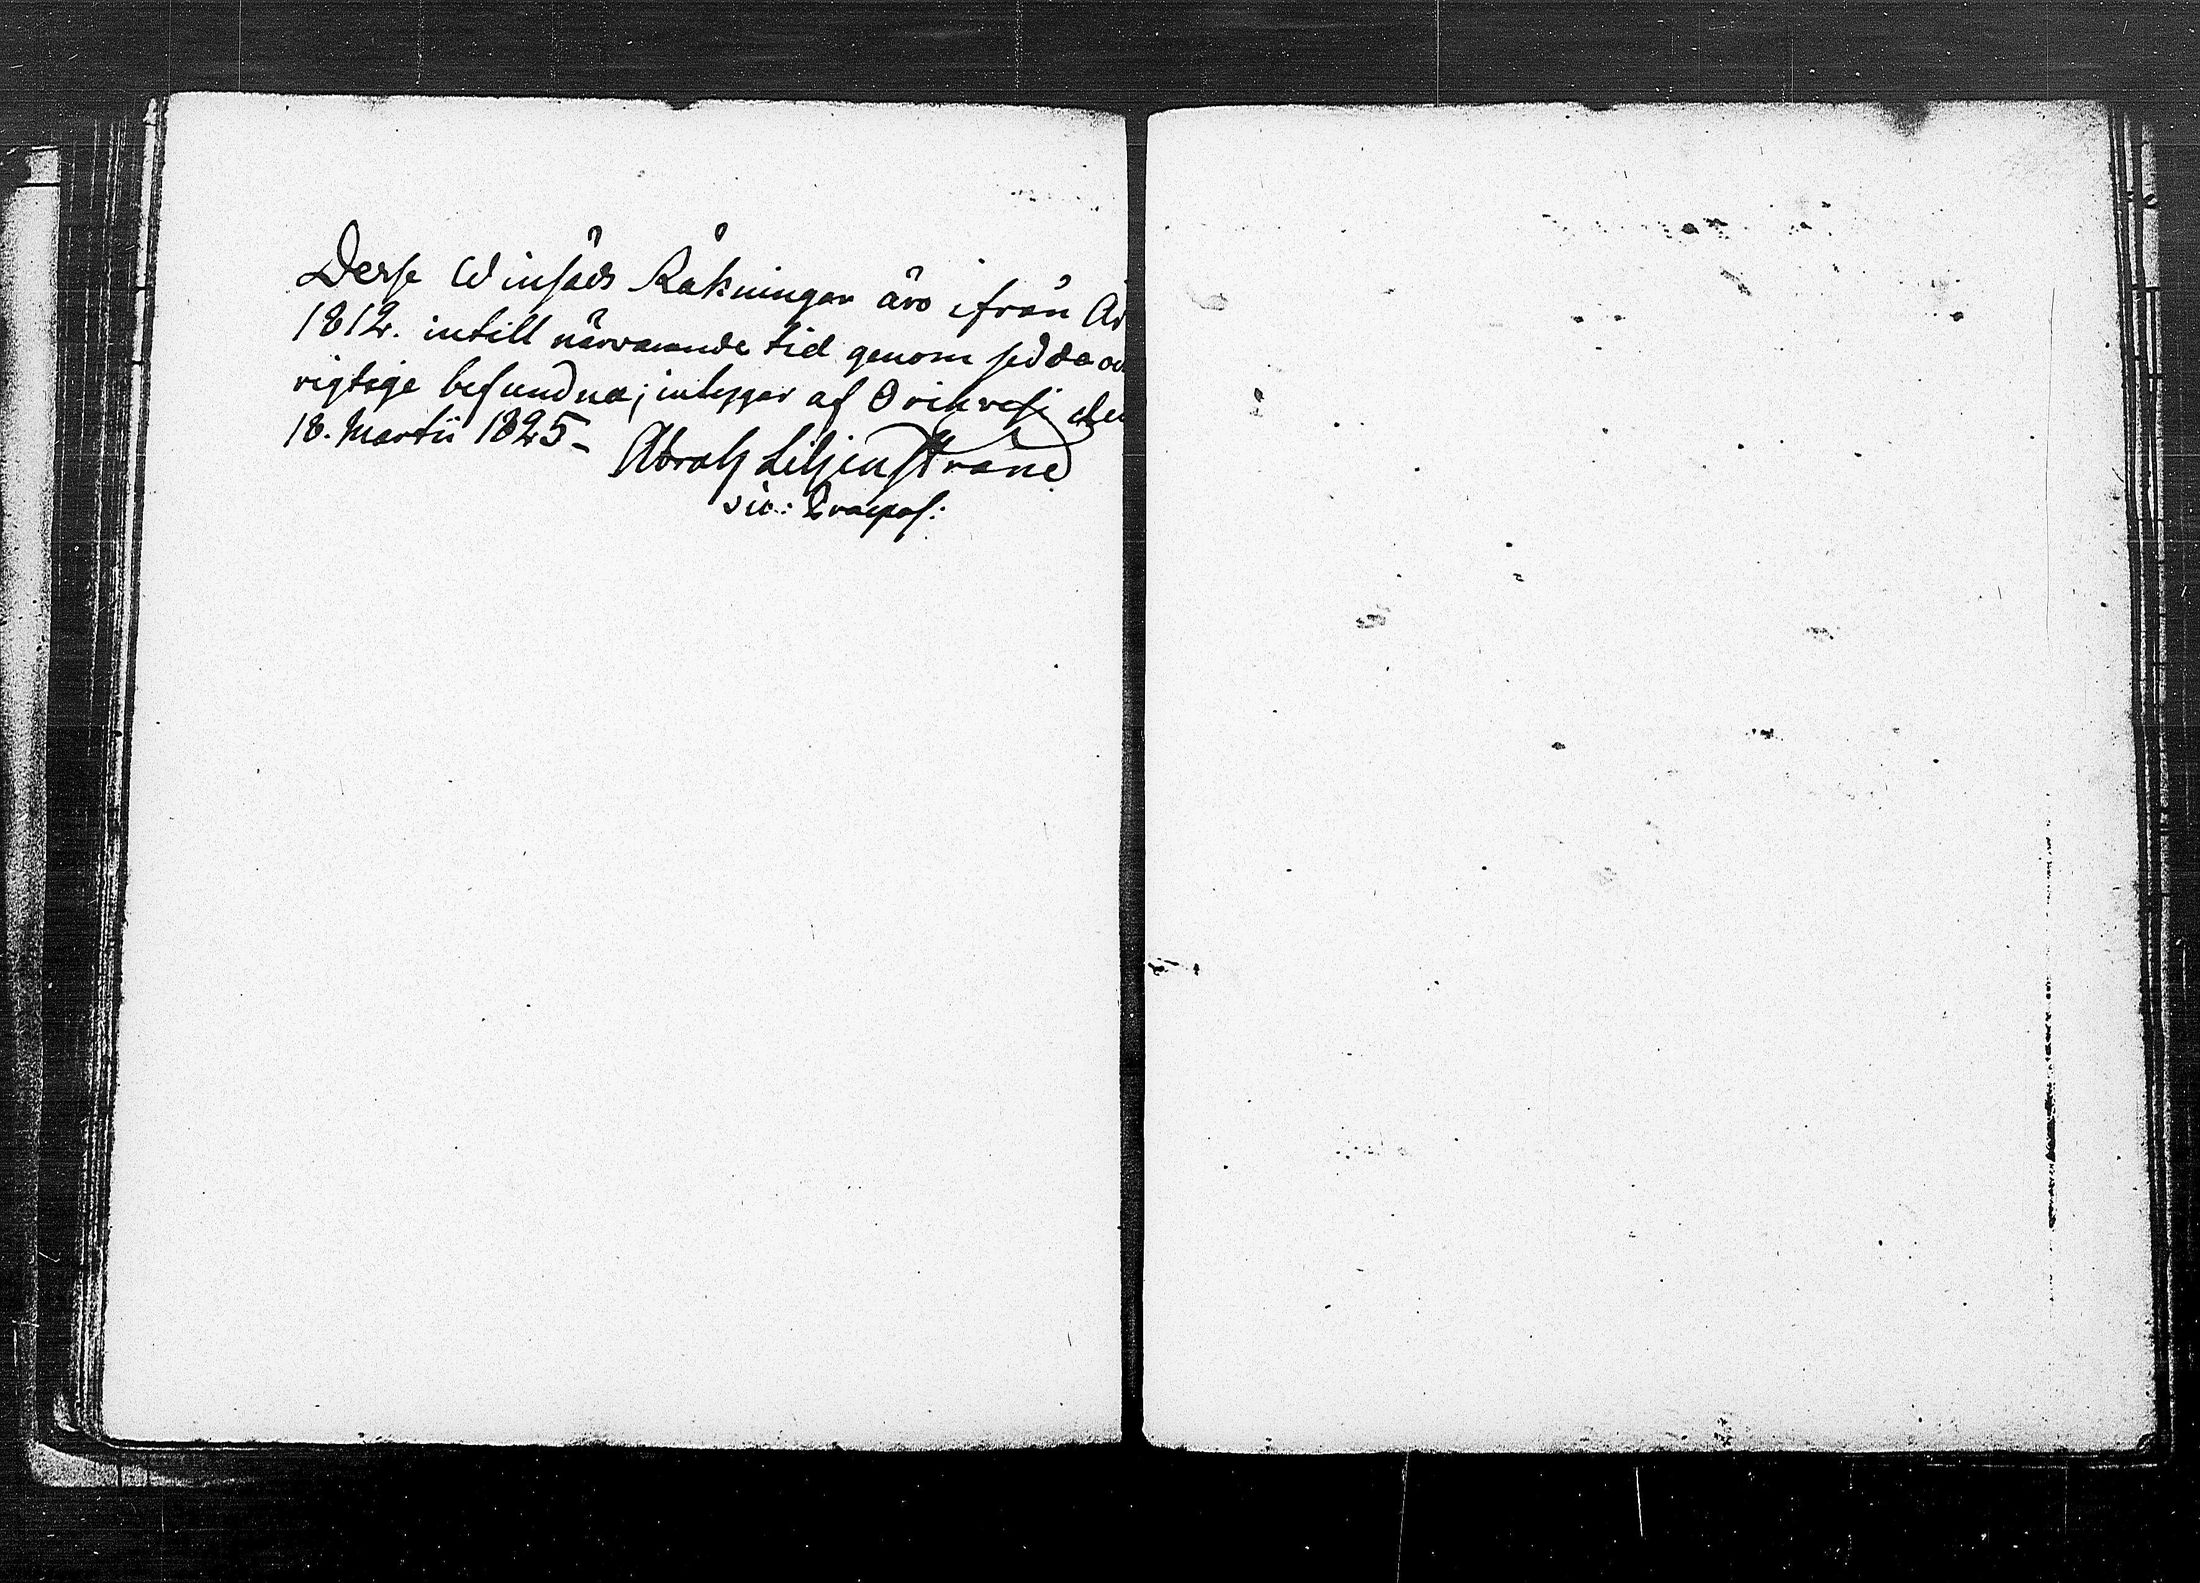 Desse Winsäds Räkningar äro ifrån År
1812. intill närvarande tid genomsedda och
rigtige befundna; intygar af Orihvesi den
18. Martii 1825 –
Abrah Liljenstrand
vic: Praepos: